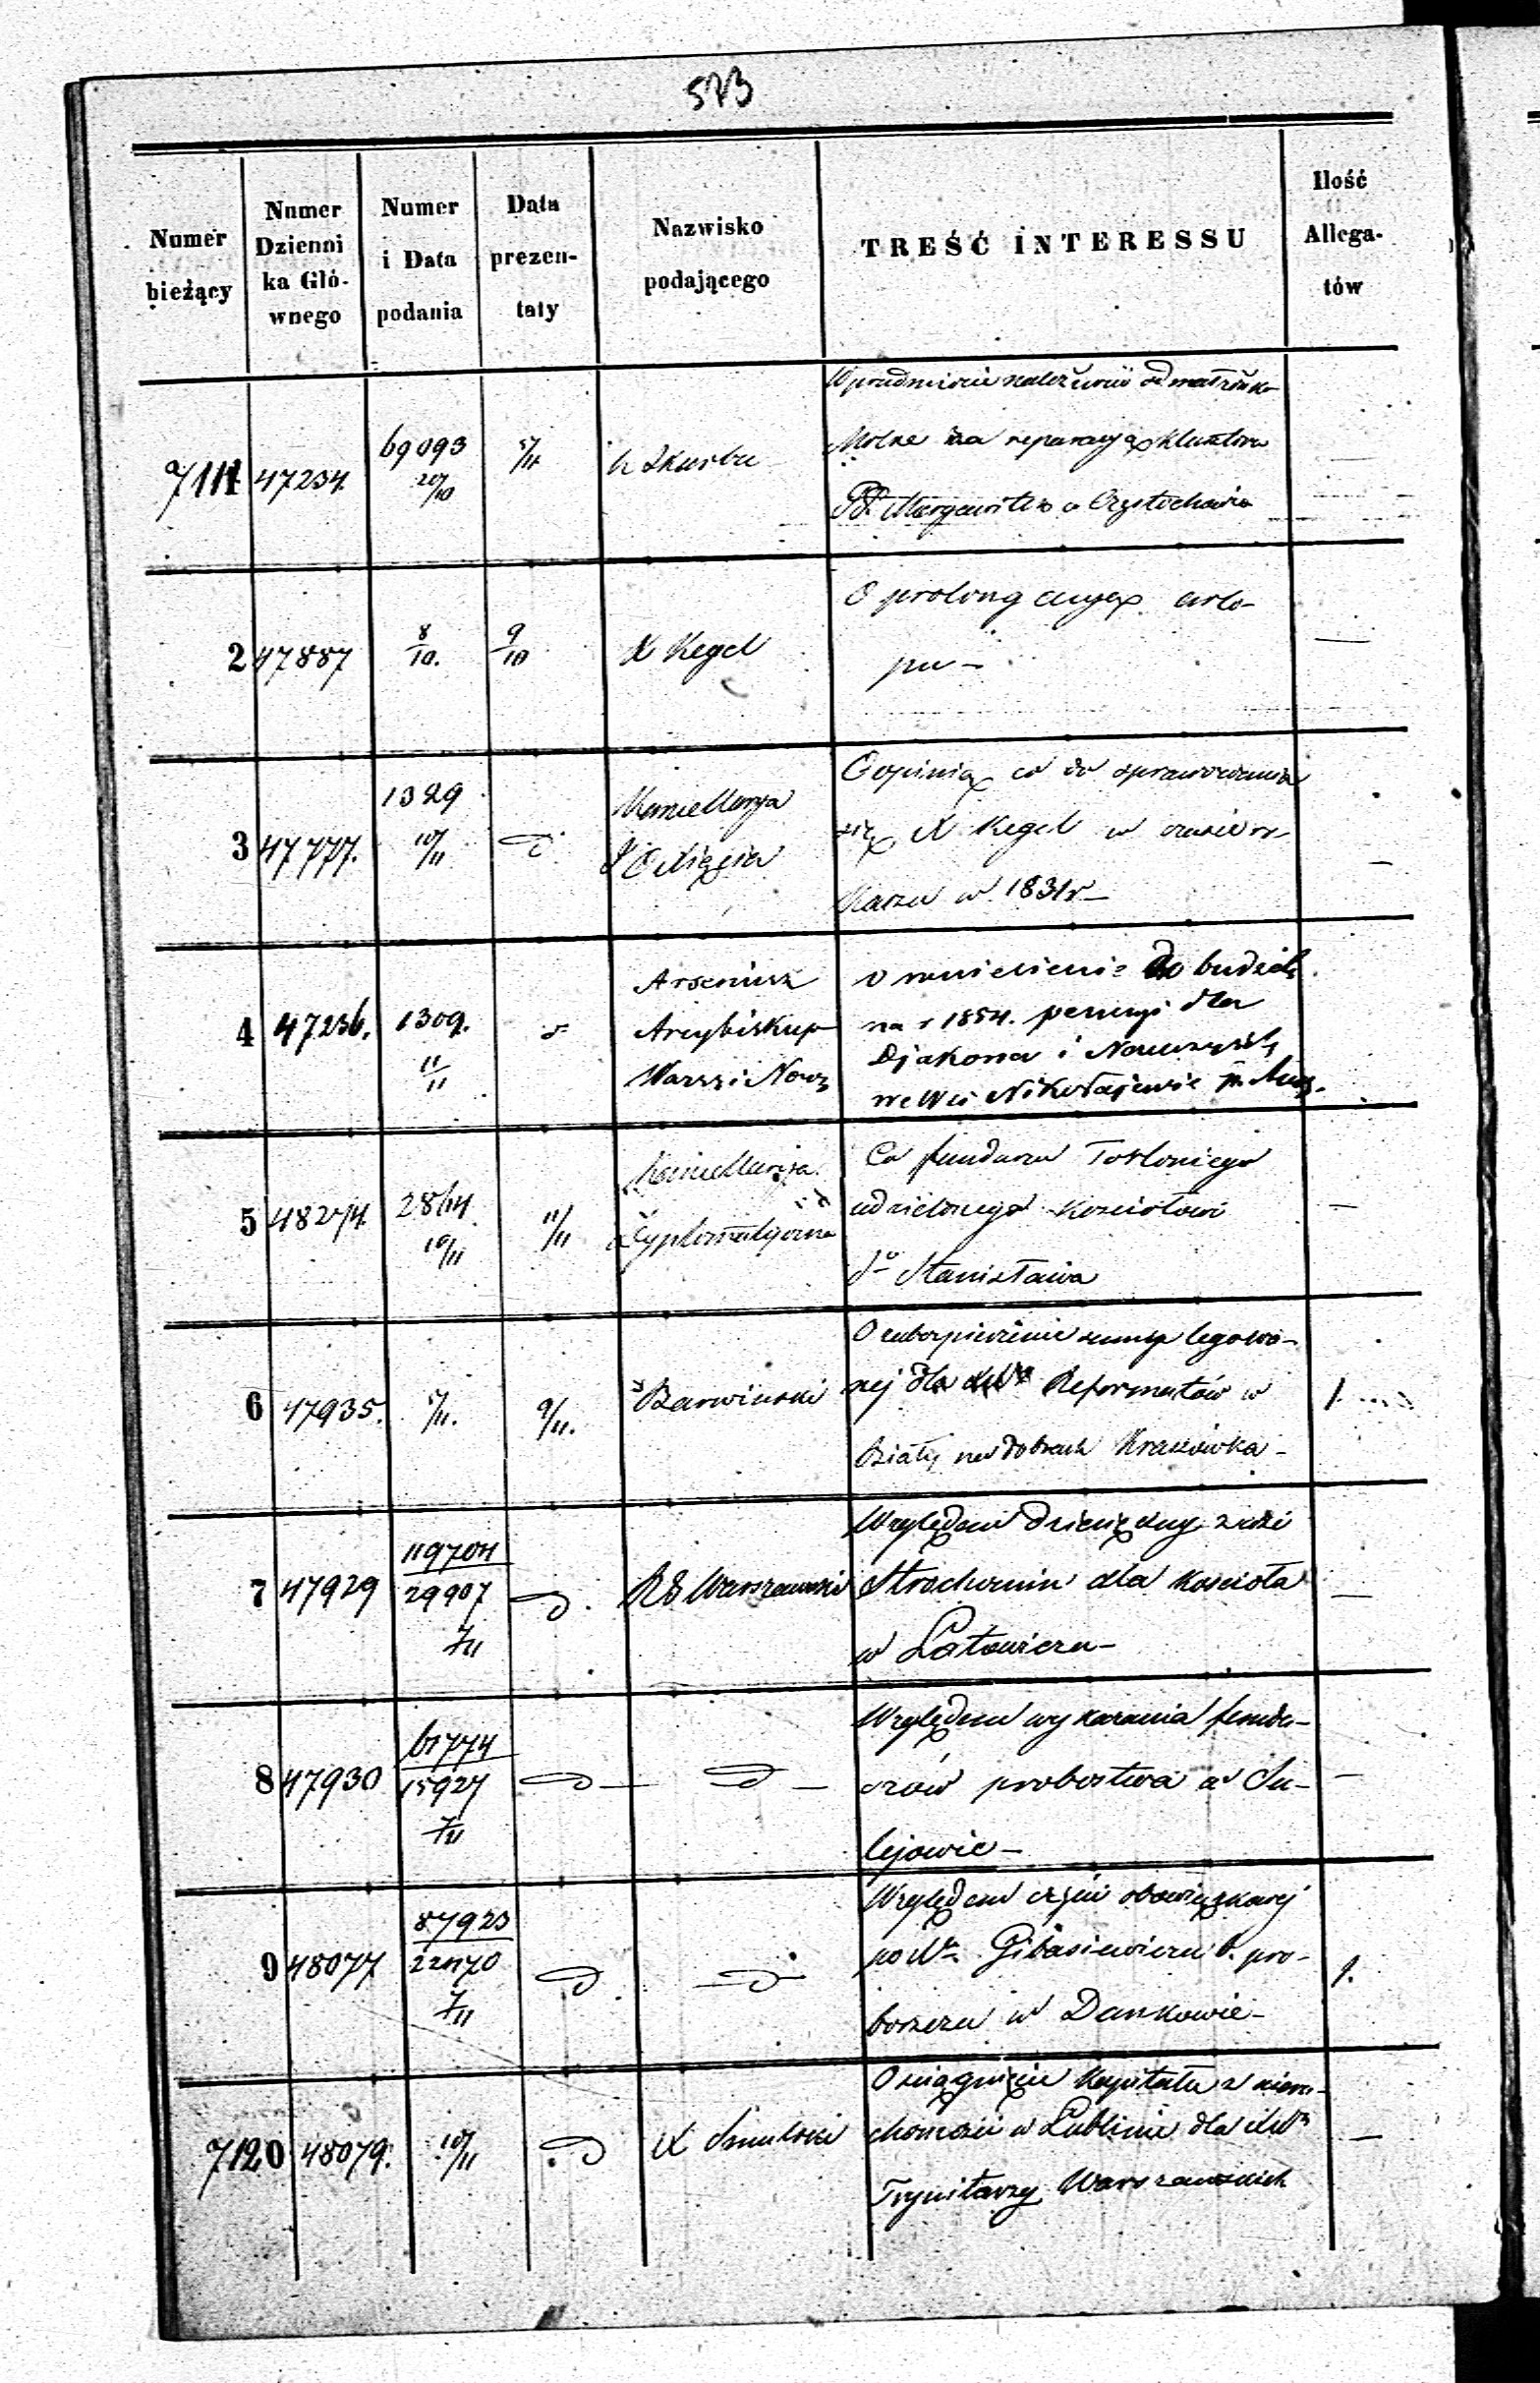 523
Numer bieżący
Numer Dzienni ka Głó- wnego
Numer i Data podania
Data prezen- taty
Nazwisko podającego
TREŚĆ INTERESSU
Ilość Allega- tów
7111 47234 69093 20/10 5/11 Skarbu
W przedmiocie
na reparacyą klasztoru
w Częstochowie
2 47887 8/10. 9/10 X Kegel
O prolongacyą urlo-
pu —
3 47777. 1329 10/11 d° Kancellarya
Xcia
O opinią co do sprawowania
się X Kegel w czasie
w 1831 r —
4 47236. 1309. 11/11 d° Arseniusz Arcybiskup Warsz i Nowo
o wniesienie do budżetu
na r 1854. pensyi dla
Djakona i
we Wsi Nikołajewie
5 48274 2864 10/11 11/11 Kancellaryja Dyplomatyczna
Co funduszu
udzielonego Kościołowi
Sgo Stanisława
6 47935. 5/11. 9/11. Barwinski
O zabezpieczenie summy legowa-
nej dla XXów Reformatów w 1.
Biały na dobrach Krasówka —
7 47929 119704 29907 7/11 d° RG Warszawski
Względem dziesięciny z wsi
Strachomin dla Kościoła —
w Latowiczu —
8 47930 61774 15927 7/11 d° — d° —
Względem wykazania fundu-
szów probostwa w Su- —
lejowie —
9 48077 87923 22470 7/11 d° d°
Względem części obowiązkowej
po Xdzu Gibasiewiczu b. pro- 1.
boszczu w Dankowie —
7120 48079. 10/11 d° X Smulski
O ściągnięcie Kapitału z nieru-
chomości w Lublinie dla XXów —
Trynitarzy Warszawskich